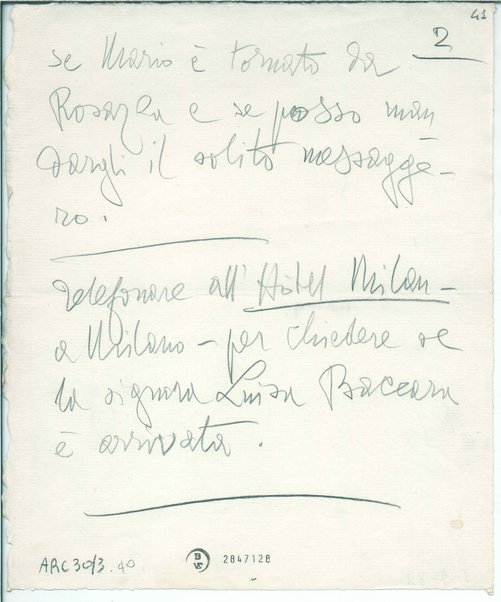 41
2
se Mario è tornato da
Rosazza e se posso man
dargli il solito messaggè-
ro.
Telefonare all' Hôtel Milan -
a Milano - per chiedere se
la signora Luisa Baccara
è arrivata.
ARC 30/3.40
2847128